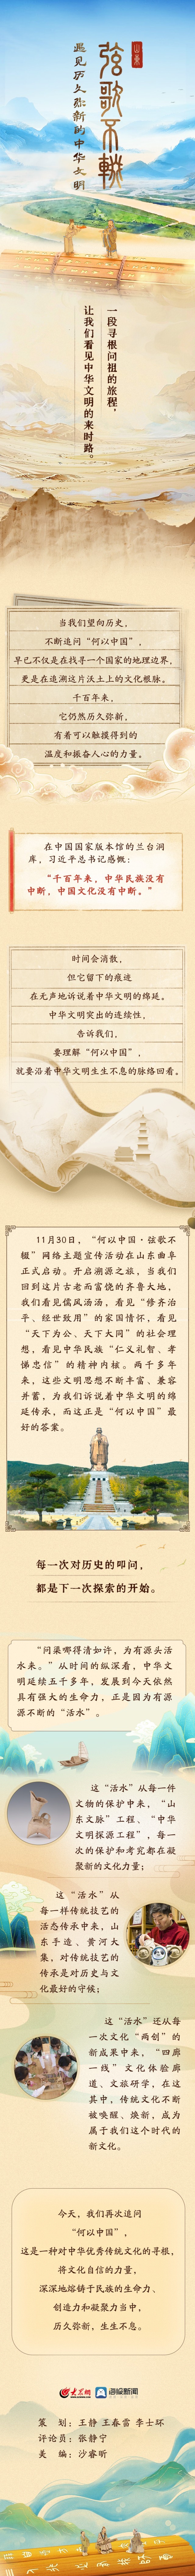 山东
弦歌不辍
遇见历久弥新的中华文明
一段寻根问祖的旅程，
让我们看见中华文明的来时路。
当我们望向历史，
不断追问“何以中国”，
早已不仅是在找寻一个国家的地理边界，
更是在追溯这片沃土上的文化根脉。
千百年来，
它仍然历久弥新，
有着可以触摸得到的
温度和振奋人心的力量。
在中国国家版本馆的兰台洞
库，习近平总书记感慨：
“千百年来，中华民族没有
中断，中国文化没有中断。”
时间会消散，
但它留下的痕迹
在无声地诉说着中华文明的绵延。
中华文明突出的连续性，
告诉我们，
要理解“何以中国”，
就要沿着中华文明生生不息的脉络回看。
11月30日，“何以中国·弦歌不
辍”网络主题宣传活动在山东曲阜
正式启动。开启溯源之旅，当我们
回到这片古老而富饶的齐鲁大地，
我们看见儒风汤汤，看见“修齐治
平、经世致用”的家国情怀，看见
“天下为公、天下大同”的社会理
想，看见中华民族“仁义礼智、孝
悌忠信”的精神内核。两千多年
来，这些文明思想不断丰富、兼容
并蓄，为我们诉说着中华文明的绵
延传承，而这正是“何以中国”最
好的答案。
每一次对历史的叩问，
都是下一次探索的开始。
“问渠哪得清如许，为有源头活
水来。”从时间的纵深看，中华文
明延续五千多年，发展到今天依然
具有强大的生命力，正是因为有源
源不断的“活水”。
这“活水”从每一件
文物的保护中来，“山
东文脉”工程、“中华
文明探源工程”，每一
次的保护和考究都在凝
聚新的文化力量；
这“活水”从
每一样传统技艺的
活态传承中来，山
东手造、黄河大
集，对传统技艺的
传承是对历史与文
化最好的守候；
这“活水”还从每
一次文化“两创”的
新成果中来，“四廊
一线”文化体验廊
道、文旅研学，在这
其中，传统文化不断
被唤醒、焕新，成为
属于我们这个时代的
新文化。
今天，我们再次追问
“何以中国”，
这是一种对中华优秀传统文化的寻根，
将文化自信的力量，
深深地熔铸于民族的生命力、
创造力和凝聚力当中，
历久弥新，生生不息。
大众网 海报新闻
策 划：王静 王春雷 李士环
评论员：张静宁
美 编：沙睿昕